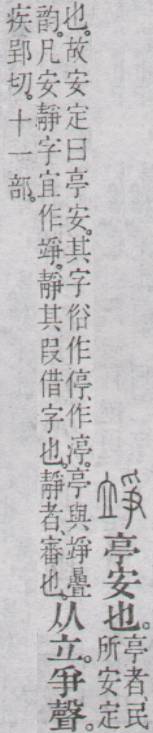 竫 亭安也。
亭者、民
所安定
也。故安定曰亭安。其字俗作停、作渟。亭與竫曡
韵。凡安靜字宜作竫。靜其叚借字也。靜者、審也。
从立。爭聲。
疾郢切。十一部。